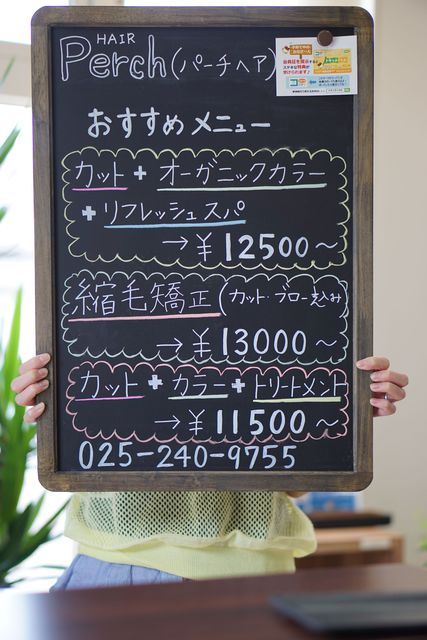 HAIR
Perch (パーチヘア)
おすすめメニュー
カット + オーガニックカラー
+ リフレッシュスパ
→ ¥12500〜
縮毛矯正(カット・ブロー込み
→ ¥13000〜
カット + カラー + トリートメント
→ ¥11500〜
025-240-9755